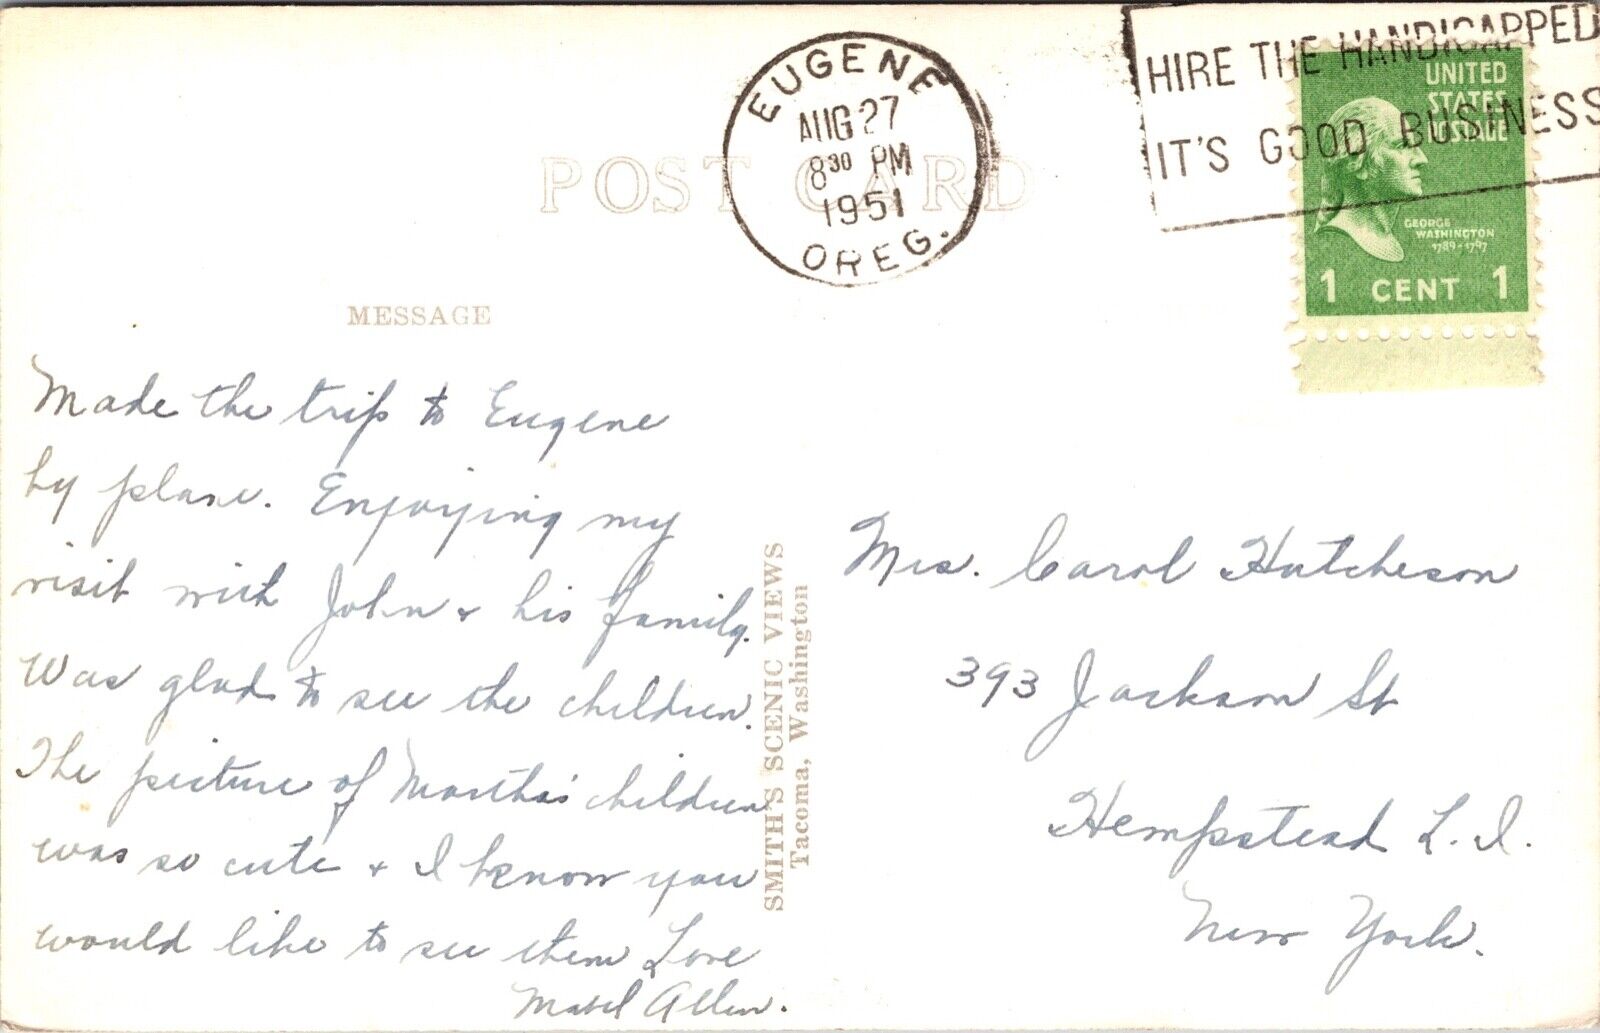 EUGENE
AUG 27
8 30 PM
1951
OREG.
HIRE THE HANDICAPPED
IT'S GOOD BUSINESS
UNITED
STATES
POSTAGE
GEORGE
WASHINGTON
1789-1797
1 CENT 1
POST CARD
MESSAGE
Made the trip to Eugene
by plane. Enjoying my
visit with John + his family.
Was glad to see the children.
The picture of Martha's children
was so cute + I know you
would like to see them Love
Mabel Allen.
SMITH'S SCENIC VIEWS
Tacoma, Washington
Mrs. Carol Hutcheson
393 Jackson St
Hempstead L.I.
New York.